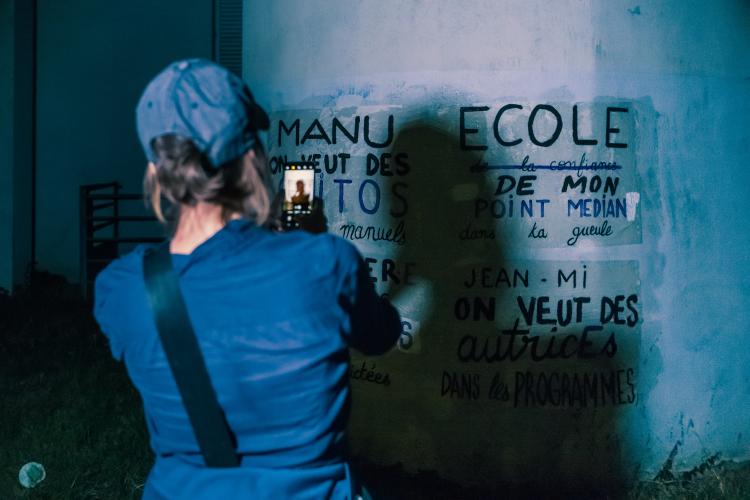 MANU
ON VEUT DES
manuels
ECOLE
de la confiance
DE MON
POINT MEDIAN
dans ta gueule
JEAN-MI
ON VEUT DES
autrices
DANS les PROGRAMMES